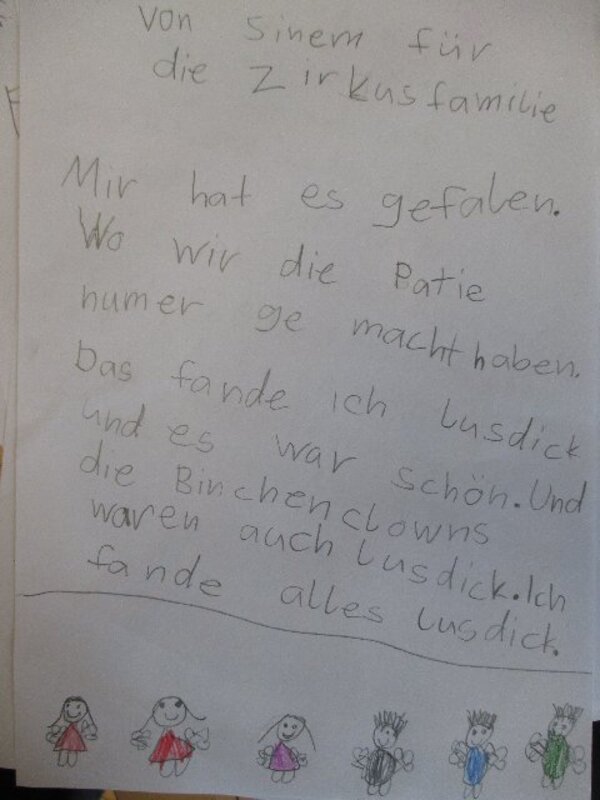 von Sinem für
die Zirkusfamilie
Mir hat es gefalen.
Wo wir die Patie
numer ge macht haben.
Das fande ich lusdick
und es war schön. Und
die Binchenclowns
waren auch lusdick. Ich
fande alles lusdick.